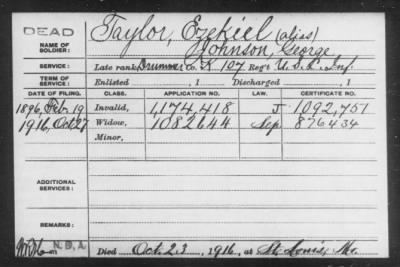 DEAD
Taylor, Ezekiel (alias)
NAME OF SOLDIER:
Johnson, George
SERVICE: Late rank Drummer Co. K 107 Reg't U.S.C. Inf.
TERM OF SERVICE: Enlisted , 1 Discharged , 1
DATE OF FILING. CLASS. APPLICATION NO. LAW. CERTIFICATE NO.
1896, Feb. 19 Invalid, 1,174,418 J 1,092,751
1916, Oct 27 Widow, 1082644 Sep. 876434
Minor,
ADDITIONAL SERVICES:
REMARKS:
N.D.A. Died Oct. 23, 1916, at St. Louis, Mo.